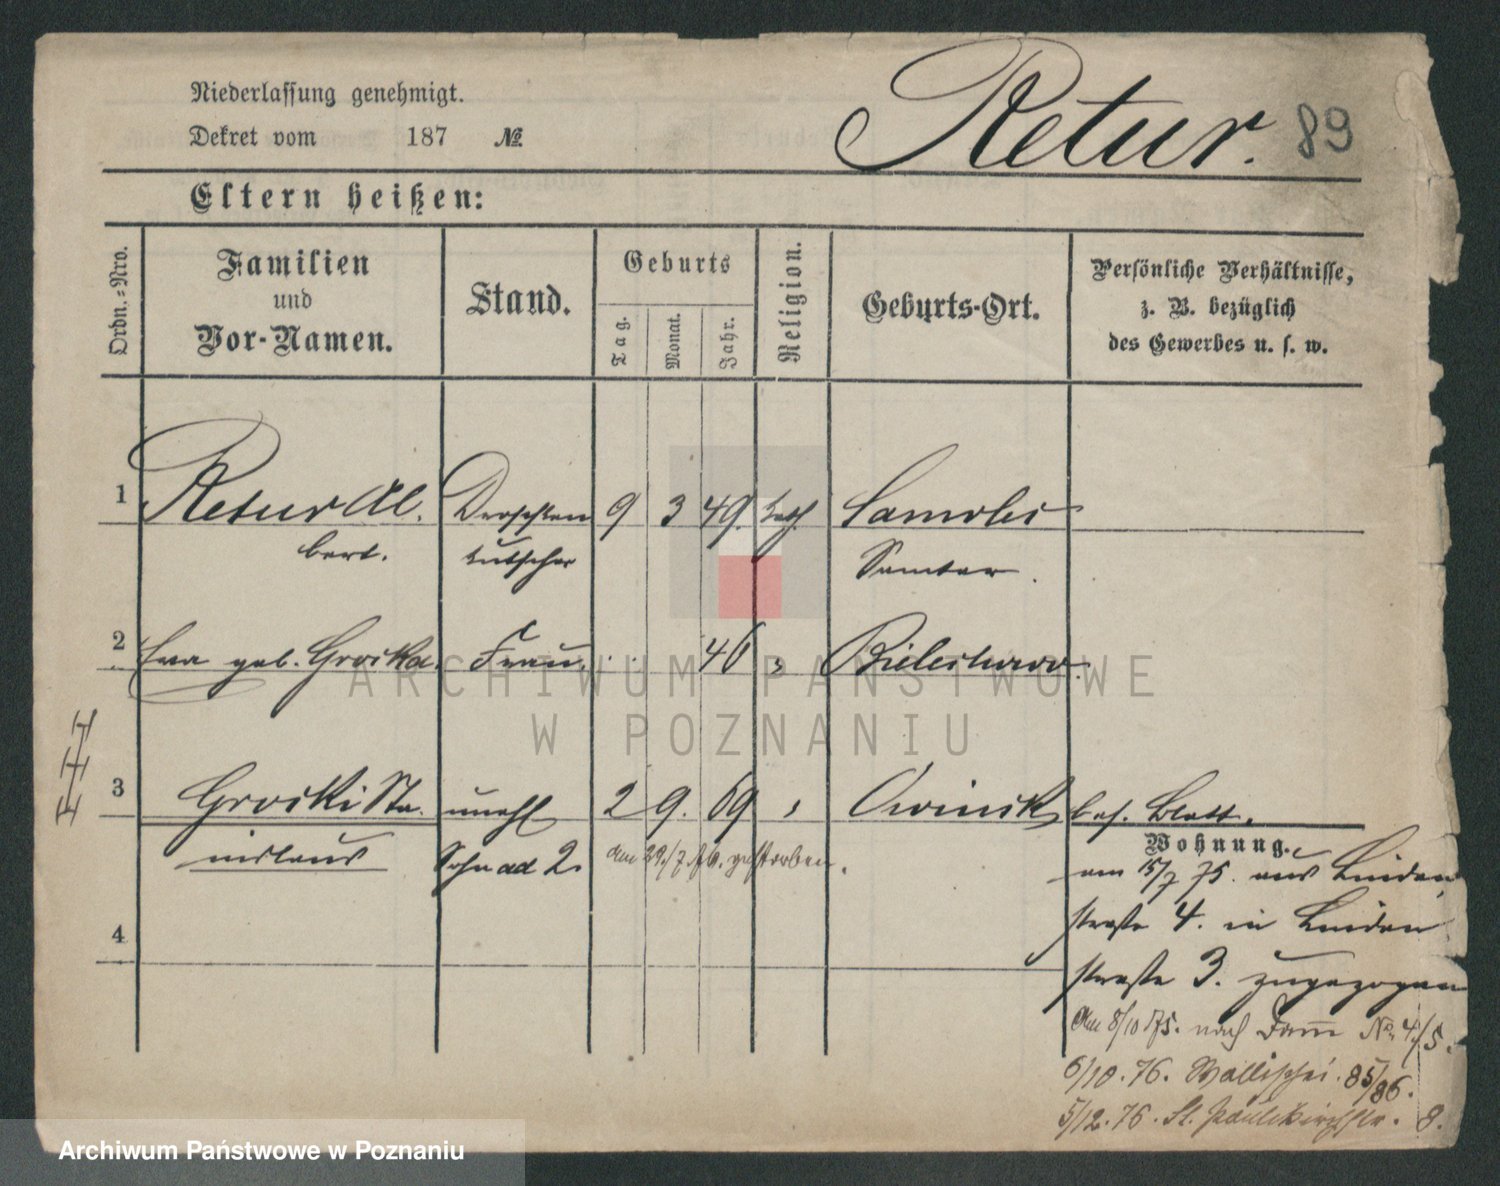 Niederlassung genehmigt.
Dekret vom 187 №
Retur. 89
Eltern heißen:
Ordn.=Nro.
Familien
und
Vor-Namen.
Stand.
Geburts
Tag.
Monat.
Jahr.
Religion.
Geburts-Ort.
Persönliche Verhältnisse,
z. B. bezüglich
des Gewerbes u. s. w.
1 Retur Al- Droschken 9 3 49. kath.
bert. kutscher Samter
2 Eva geb. Grocka. Frau. 46 "
3 Grocki Sta- unehl 2 9. 69 " Owinsk bes. Blatt.
nislaus Sohn ad 2. am 29./7. gestorben.
Wohnung.
am 15/7 75. aus Linden
straße 4. in Linden
straße 3. zugezogen
Am 8/10 75. nach Damm No 4/5.
6/10. 76. Wallischei. 85/86.
5/12. 76. St. Paulikirchstr. 8.
4
ARCHIWUM PAŃSTWOWE
W POZNANIU
Archiwum Państwowe w Poznaniu